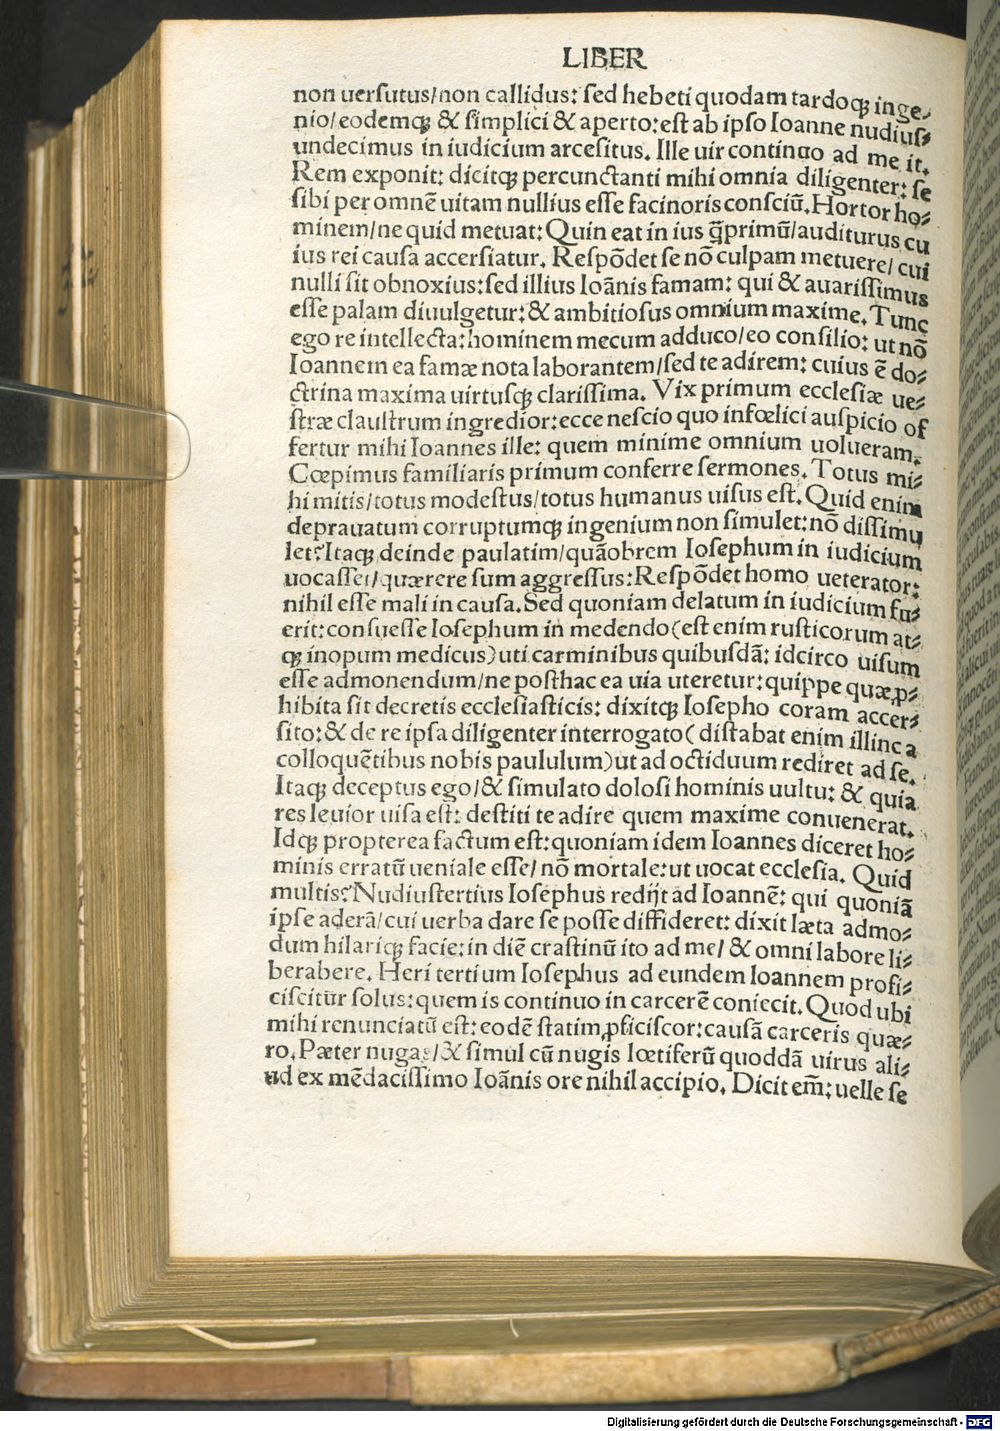 LIBER
non uerſutus/non callidus: ſed hebeti quodam tardoqꝫ inge⸗
nio/eodemqꝫ & ſimplici & aperto: eſt ab ipſo Ioanne nudiuſ⸗
undecimus in iudicium arceſitus. Ille uir continuo ad me it.
Rem exponit: dicitqꝫ percunctanti mihi omnia diligenter: ſe
ſibi per omnē uitam nullius eſſe facinoris conſciū. Hortor ho⸗
minem/ne quid metuat: Quin eat in ius q̄primū/auditurus cu
ius rei cauſa accerſiatur. Reſpōdet ſe nō culpam metuere/ cui
nulli ſit obnoxius: ſed illius Ioānis famam: qui & auariſſimus
eſſe palam diuulgetur: & ambitioſus omnium maxime. Tunc
ego re intellecta: hominem mecum adduco/eo conſilio: ut nō
Ioannem ea famæ nota laborantem/ſed te adirem: cuius ē do⸗
ctrina maxima uirtuſqꝫ clariſſima. Vix primum eccleſiæ ue⸗
ſtræ clauſtrum ingredior: ecce neſcio quo infœlici auſpicio of
fertur mihi Ioannes ille: quem minime omnium uolueram.
Cœpimus familiaris primum conferre ſermones. Totus mi⸗
hi mitis/totus modeſtus/totus humanus uiſus eſt. Quid enim
deprauatum corruptumqꝫ ingenium non ſimulet: nō diſſimu
let? Itaqꝫ deinde paulatim/quāobrem Ioſephum in iudicium
uocaſſet/quærere ſum aggreſſus: Reſpōdet homo ueterator:
nihil eſſe mali in cauſa. Sed quoniam delatum in iudicium fu⸗
erit: conſueſſe Ioſephum in medendo (eſt enim ruſticorum at⸗
qꝫ inopum medicus) uti carminibus quibuſdā: idcirco uiſum
eſſe admonendum/ne poſthac ea uia uteretur: quippe quæ ꝓ⸗
hibita ſit decretis eccleſiaſticis: dixitqꝫ Ioſepho coram accer⸗
ſito: & de re ipſa diligenter interrogato (diſtabat enim illinc a
colloquētibus nobis paululum) ut ad octiduum rediret ad ſe.
Itaqꝫ deceptus ego/& ſimulato doloſi hominis uultu: & quia
res leuior uiſa eſt: deſtiti te adire quem maxime conuenerat.
Idqꝫ propterea factum eſt: quoniam idem Ioannes diceret ho⸗
minis erratū ueniale eſſe/ nō mortale: ut uocat eccleſia. Quid
multis? Nudiuſtertius Ioſephus redijt ad Ioannē: qui quoniā
ipſe aderā/cui uerba dare ſe poſſe diffideret: dixit læta admo⸗
dum hilariqꝫ facie: in diē craſtinū ito ad me/ & omni labore li⸗
berabere. Heri tertium Ioſephus ad eundem Ioannem profi⸗
ciſcitur ſolus: quem is continuo in carcerē coniecit. Quod ubi
mihi renunciatū eſt: eodē ſtatim ꝓficiſcor: cauſā carceris quæ⸗
ro. Præter nugas/& ſimul cū nugis lœtiferū quoddā uirus ali⸗
ud ex mēdaciſſimo Ioānis ore nihil accipio. Dicit em̄: uelle ſe
Digitalisierung gefördert durch die Deutsche Forschungsgemeinschaft - DFG